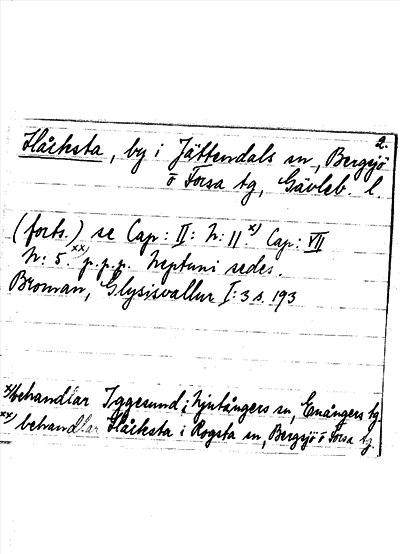 2.
Håcksta, by i Jättendals sn, Bergsjö
o Forsa tg, Gävleb. l.
(forts.) se Cap: II: N: 11.x) Cap: VII
N: 5.xx) p.p.p. Neptuni sedes.
Broman, Glysisvallur I: 3 s. 193
x) behandlar Iggesund i Njutångers sn, Enångers tg.
xx) behandlar Håcksta i Rogsta sn, Bergsjö o Forsa tg.